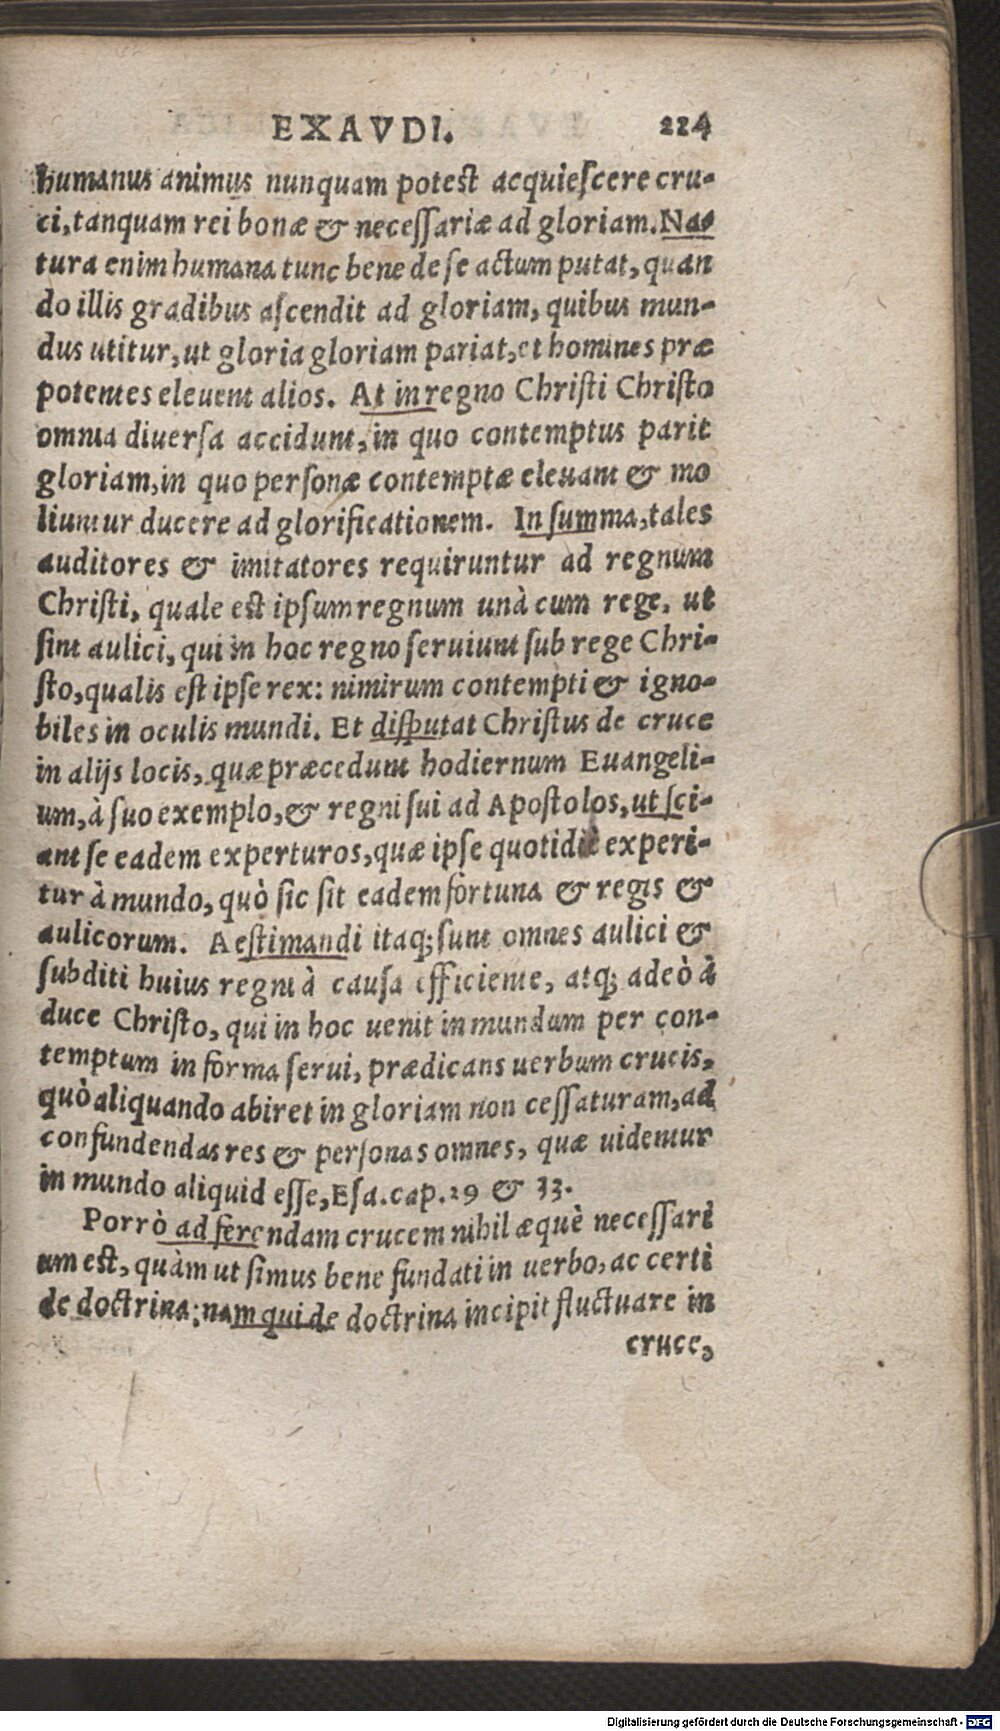 EXAVDI. 224
humanus animus nunquam potest acquiescere cru-
ci, tanquam rei bonæ & necessariæ ad gloriam. Na-
tura enim humana tunc bene de se actum putat, quan
do illis gradibus ascendit ad gloriam, quibus mun-
dus utitur, ut gloria gloriam pariat, et homines præ
potentes eleuent alios. At in regno Christi Christo
omnia diuersa accidunt, in quo contemptus parit
gloriam, in quo personæ contemptæ eleuant & mo
liuntur ducere ad glorificationem. In summa, tales
auditores & imitatores requiruntur ad regnum
Christi, quale est ipsum regnum unà cum rege, ut
sint aulici, qui in hoc regno seruiunt sub rege Chri-
sto, qualis est ipse rex: nimirum contempti & igno-
biles in oculis mundi. Et disputat Christus de cruce
in alijs locis, quæ præcedunt hodiernum Euangeli-
um, à suo exemplo, & regni sui ad Apostolos, ut sci-
ant se eadem experturos, quæ ipse quotidiè experi-
tur à mundo, quò sic sit eadem fortuna & regis &
aulicorum. Aestimandi itaq; sunt omnes aulici &
subditi huius regni à causa efficiente, atq; adeò à
duce Christo, qui in hoc uenit in mundum per con-
temptum in forma serui, prædicans uerbum crucis,
quò aliquando abiret in gloriam non cessaturam, ad
confundendas res & personas omnes, quæ uidentur
in mundo aliquid esse, Esa. cap. 29 & 33.
Porrò ad ferendam crucem nihil æquè necessari
um est, quàm ut simus bene fundati in uerbo, ac certi
de doctrina: nam qui de doctrina incipit fluctuare in
cruce,
Digitalisierung gefördert durch die Deutsche Forschungsgemeinschaft - DFG